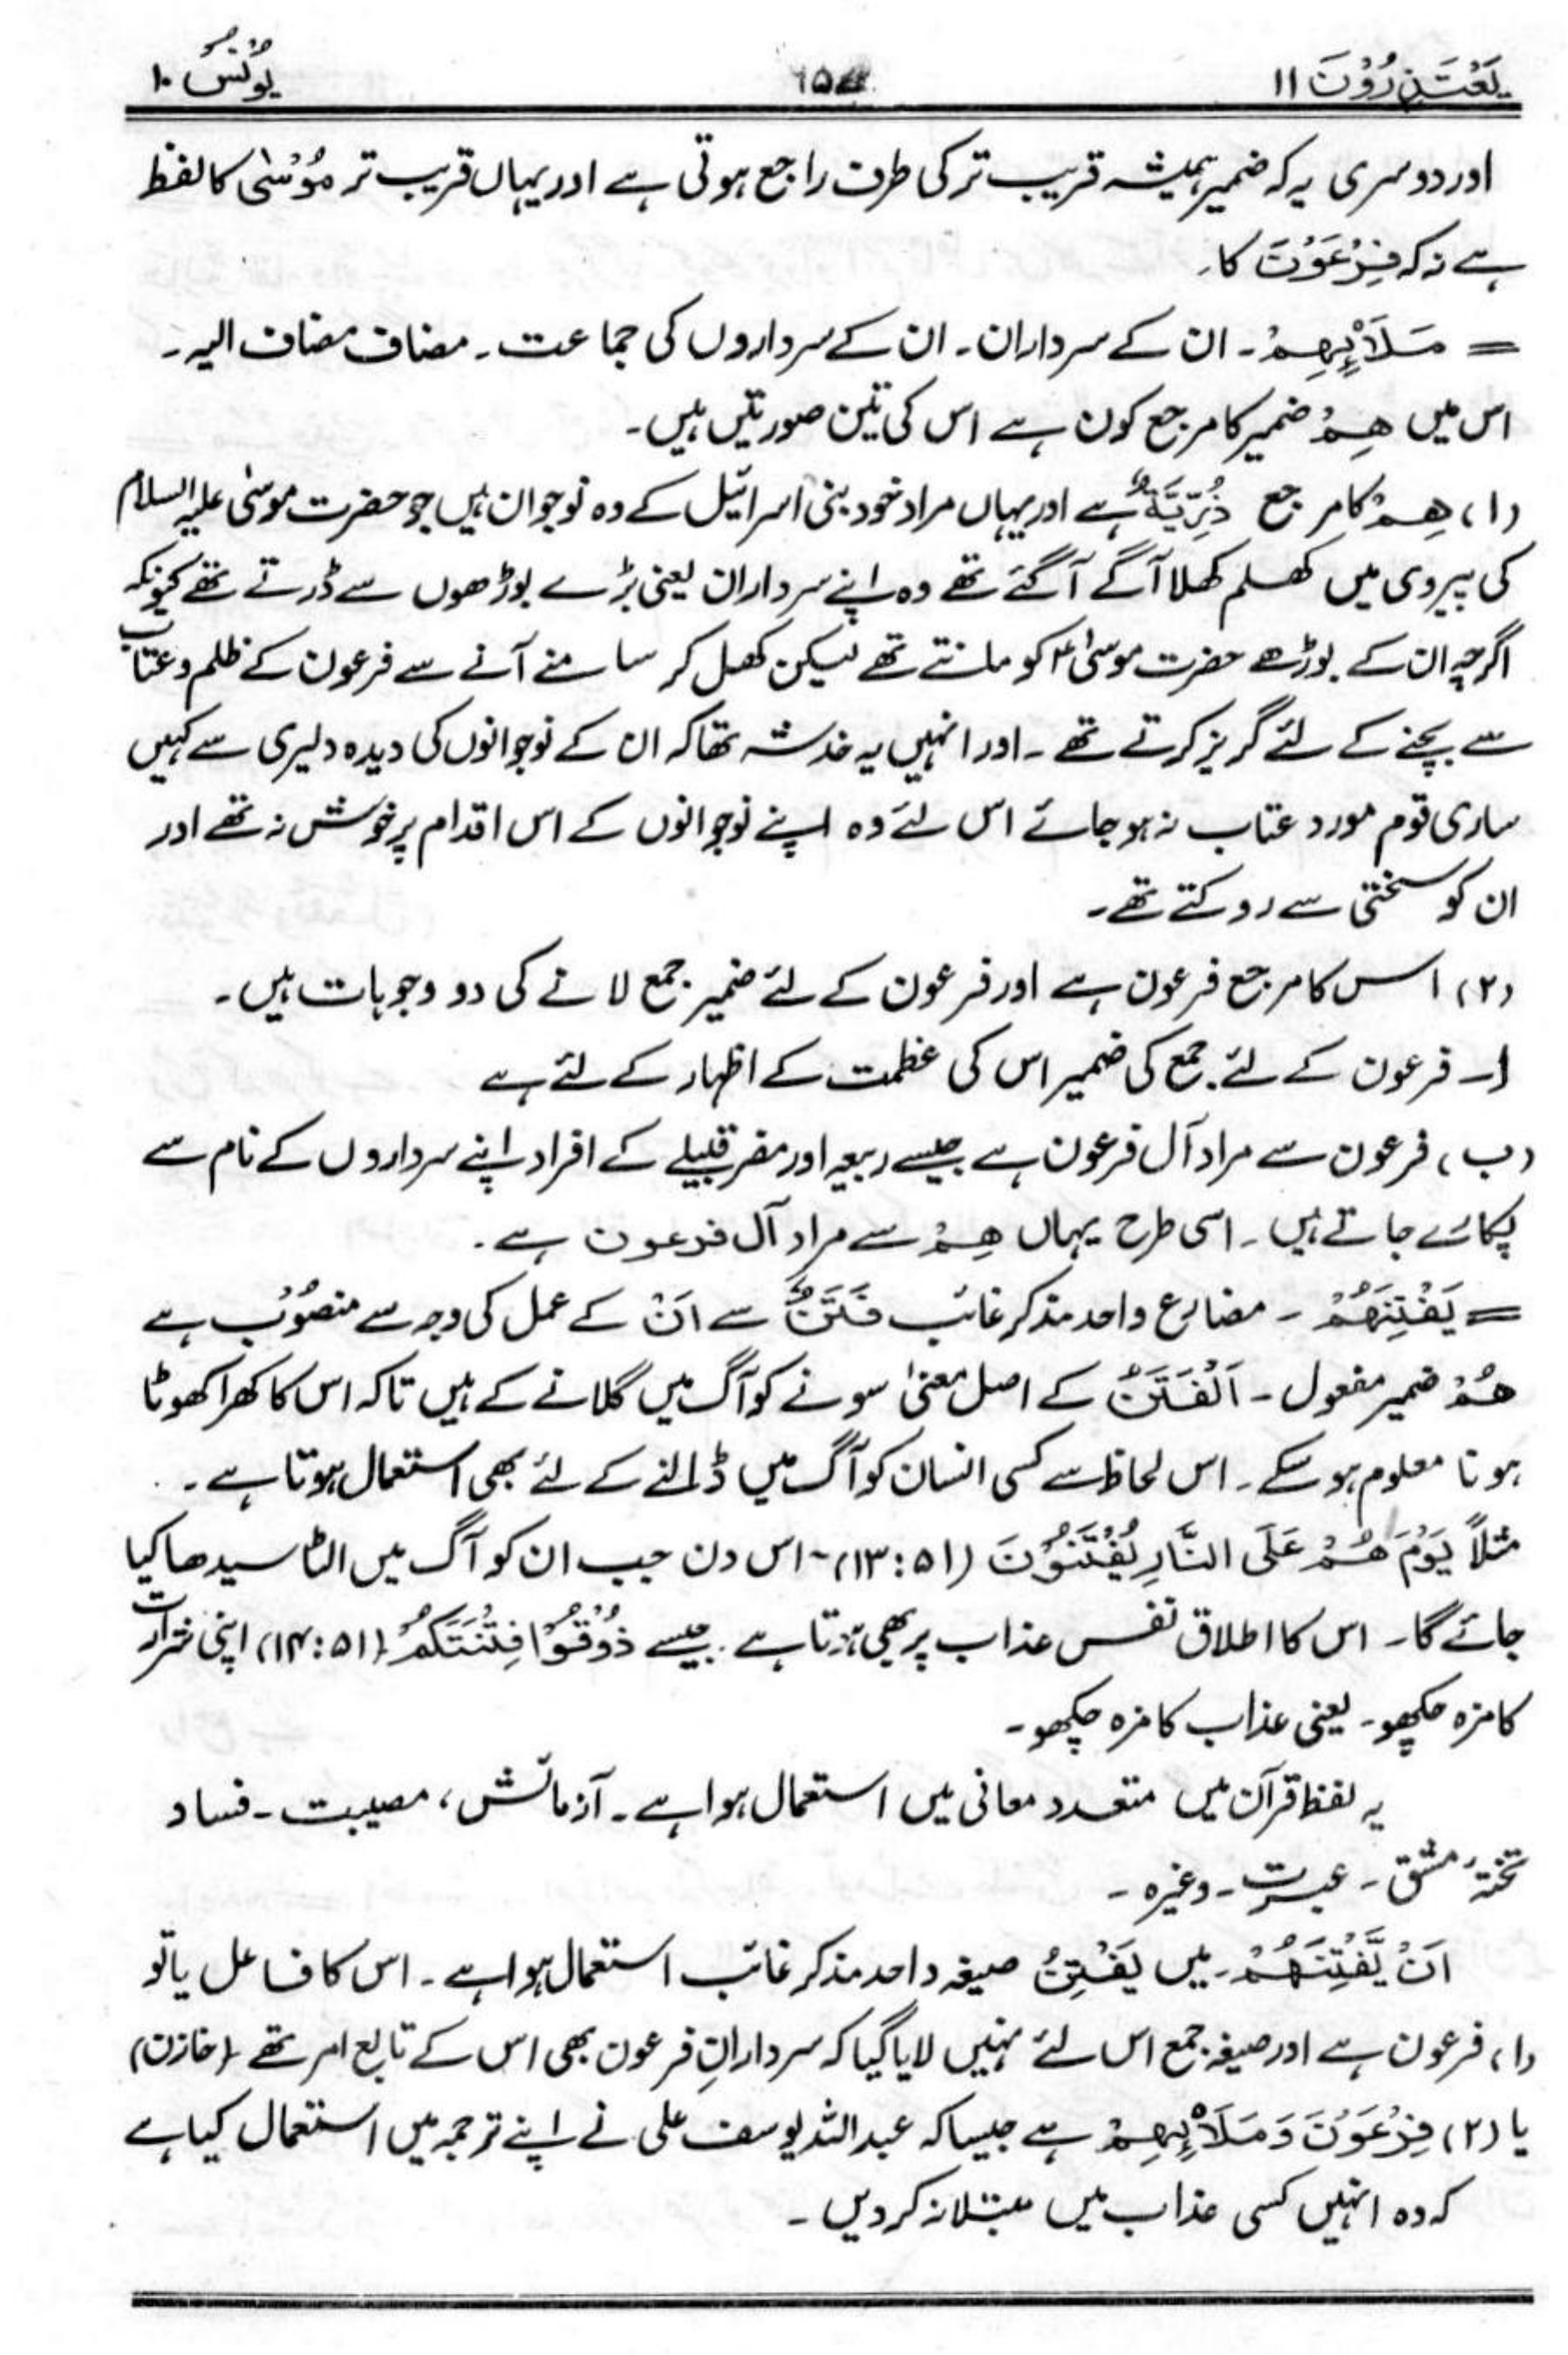 یَعْتَذِرُوْنَ ۱۱
یُوْنُسُ ۱۰
اور دوسری یہ کہ ضمیر ہمیشہ قریب تر کی طرف راجع ہوتی ہے اور یہاں قریب تر مُوْسٰی کا لفظ
ہے نہ کہ فِرْعَوْنَ کا۔
= مَلَاۡئِہِمْ۔ ان کے سرداران۔ ان کے سرداروں کی جماعت۔ مضاف مضاف الیہ۔
اس میں ھِمْ ضمیر کا مرجع کون ہے اس کی تین صورتیں ہیں۔
(۱) ھِمْ کا مرجع ذُرِّیَّۃٌ ہے اور یہاں مراد خود بنی اسرائیل کے وہ نوجوان ہیں جو حضرت موسیٰ علیہ السلام
کی پیروی میں کھلم کھلا آگے آگئے تھے وہ اپنے سرداران یعنی بڑے بوڑھوں سے ڈرتے تھے کیونکہ
اگرچہ ان کے بوڑھے حضرت موسیٰؑ کو مانتے تھے لیکن کھل کر سامنے آنے سے فرعون کے ظلم و عتاب
سے بچنے کے لئے گریز کرتے تھے۔ اور انہیں یہ خدشہ تھا کہ ان کے نوجوانوں کی دیدہ دلیری سے کہیں
ساری قوم مورد عتاب نہ ہو جائے اس لئے وہ اپنے نوجوانوں کے اس اقدام پر خوش نہ تھے اور
ان کو سختی سے روکتے تھے۔
(۲) اس کا مرجع فرعون ہے اور فرعون کے لئے ضمیر جمع لانے کی دو وجوہات ہیں۔
ا۔ فرعون کے لئے جمع کی ضمیر اس کی عظمت کے اظہار کے لئے ہے
(ب) فرعون سے مراد آل فرعون ہے جیسے ربیعہ اور مضر قبیلے کے افراد اپنے سرداروں کے نام سے
پکارے جاتے ہیں۔ اسی طرح یہاں ھِمْ سے مراد آل فرعون ہے۔
= یَفْتِنَہُمْ۔ مضارع واحد مذکر غائب فَتَنٌ سے اَنْ کے عمل کی وجہ سے منصُوْب ہے
ھُمْ ضمیر مفعول۔ اَلْفَتَنُ کے اصل معنیٰ سونے کو آگ میں گلانے کے ہیں تاکہ اس کا کھرا کھوٹا
ہونا معلوم ہو سکے۔ اس لحاظ سے کسی انسان کو آگ میں ڈالنے کے لئے بھی استعمال ہوتا ہے۔
مثلاً یَوْمَ ھُمْ عَلَی النَّارِ یُفْتَنُوْنَ (۵۱:۱۳)۔ اس دن جب ان کو آگ میں الٹا سیدھا کیا
جائے گا۔ اس کا اطلاق نفس عذاب پر بھی ہوتا ہے۔ جیسے ذُوْقُوْا فِتْنَتَکُمْ (۵۱:۱۴) اپنی شرارت
کا مزہ چکھو۔ یعنی عذاب کا مزہ چکھو۔
یہ لفظ قرآن میں متعدد معانی میں استعمال ہوا ہے۔ آزمائش، مصیبت۔ فساد
تختۂ مشق۔ عبرت۔ وغیرہ۔
اَنْ یَّفْتِنَہُمْ۔ میں یَفْتِنُ صیغہ واحد مذکر غائب استعمال ہوا ہے۔ اس کا فاعل یا تو
(۱) فرعون ہے اور صیغہ جمع اس لئے نہیں لایا گیا کہ سردارانِ فرعون بھی اس کے تابع امر تھے (خازن)
یا (۲) فِرْعَوْنَ وَ مَلَاۡئِہِمْ ہے جیسا کہ عبداللہ یوسف علی نے اپنے ترجمہ میں استعمال کیا ہے
کہ وہ انہیں کسی عذاب میں مبتلا نہ کر دیں۔